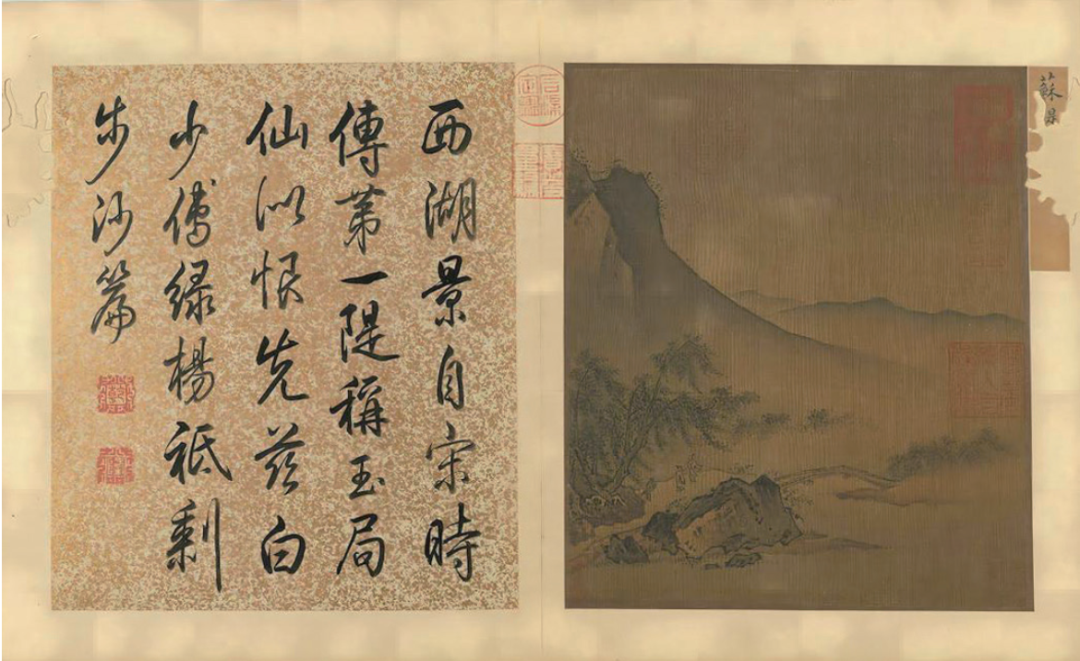 蘇
西湖景自宋時
傳第一隄稱玉局
仙似恨先茲白
少傅緑楊祗剩
步沙篇